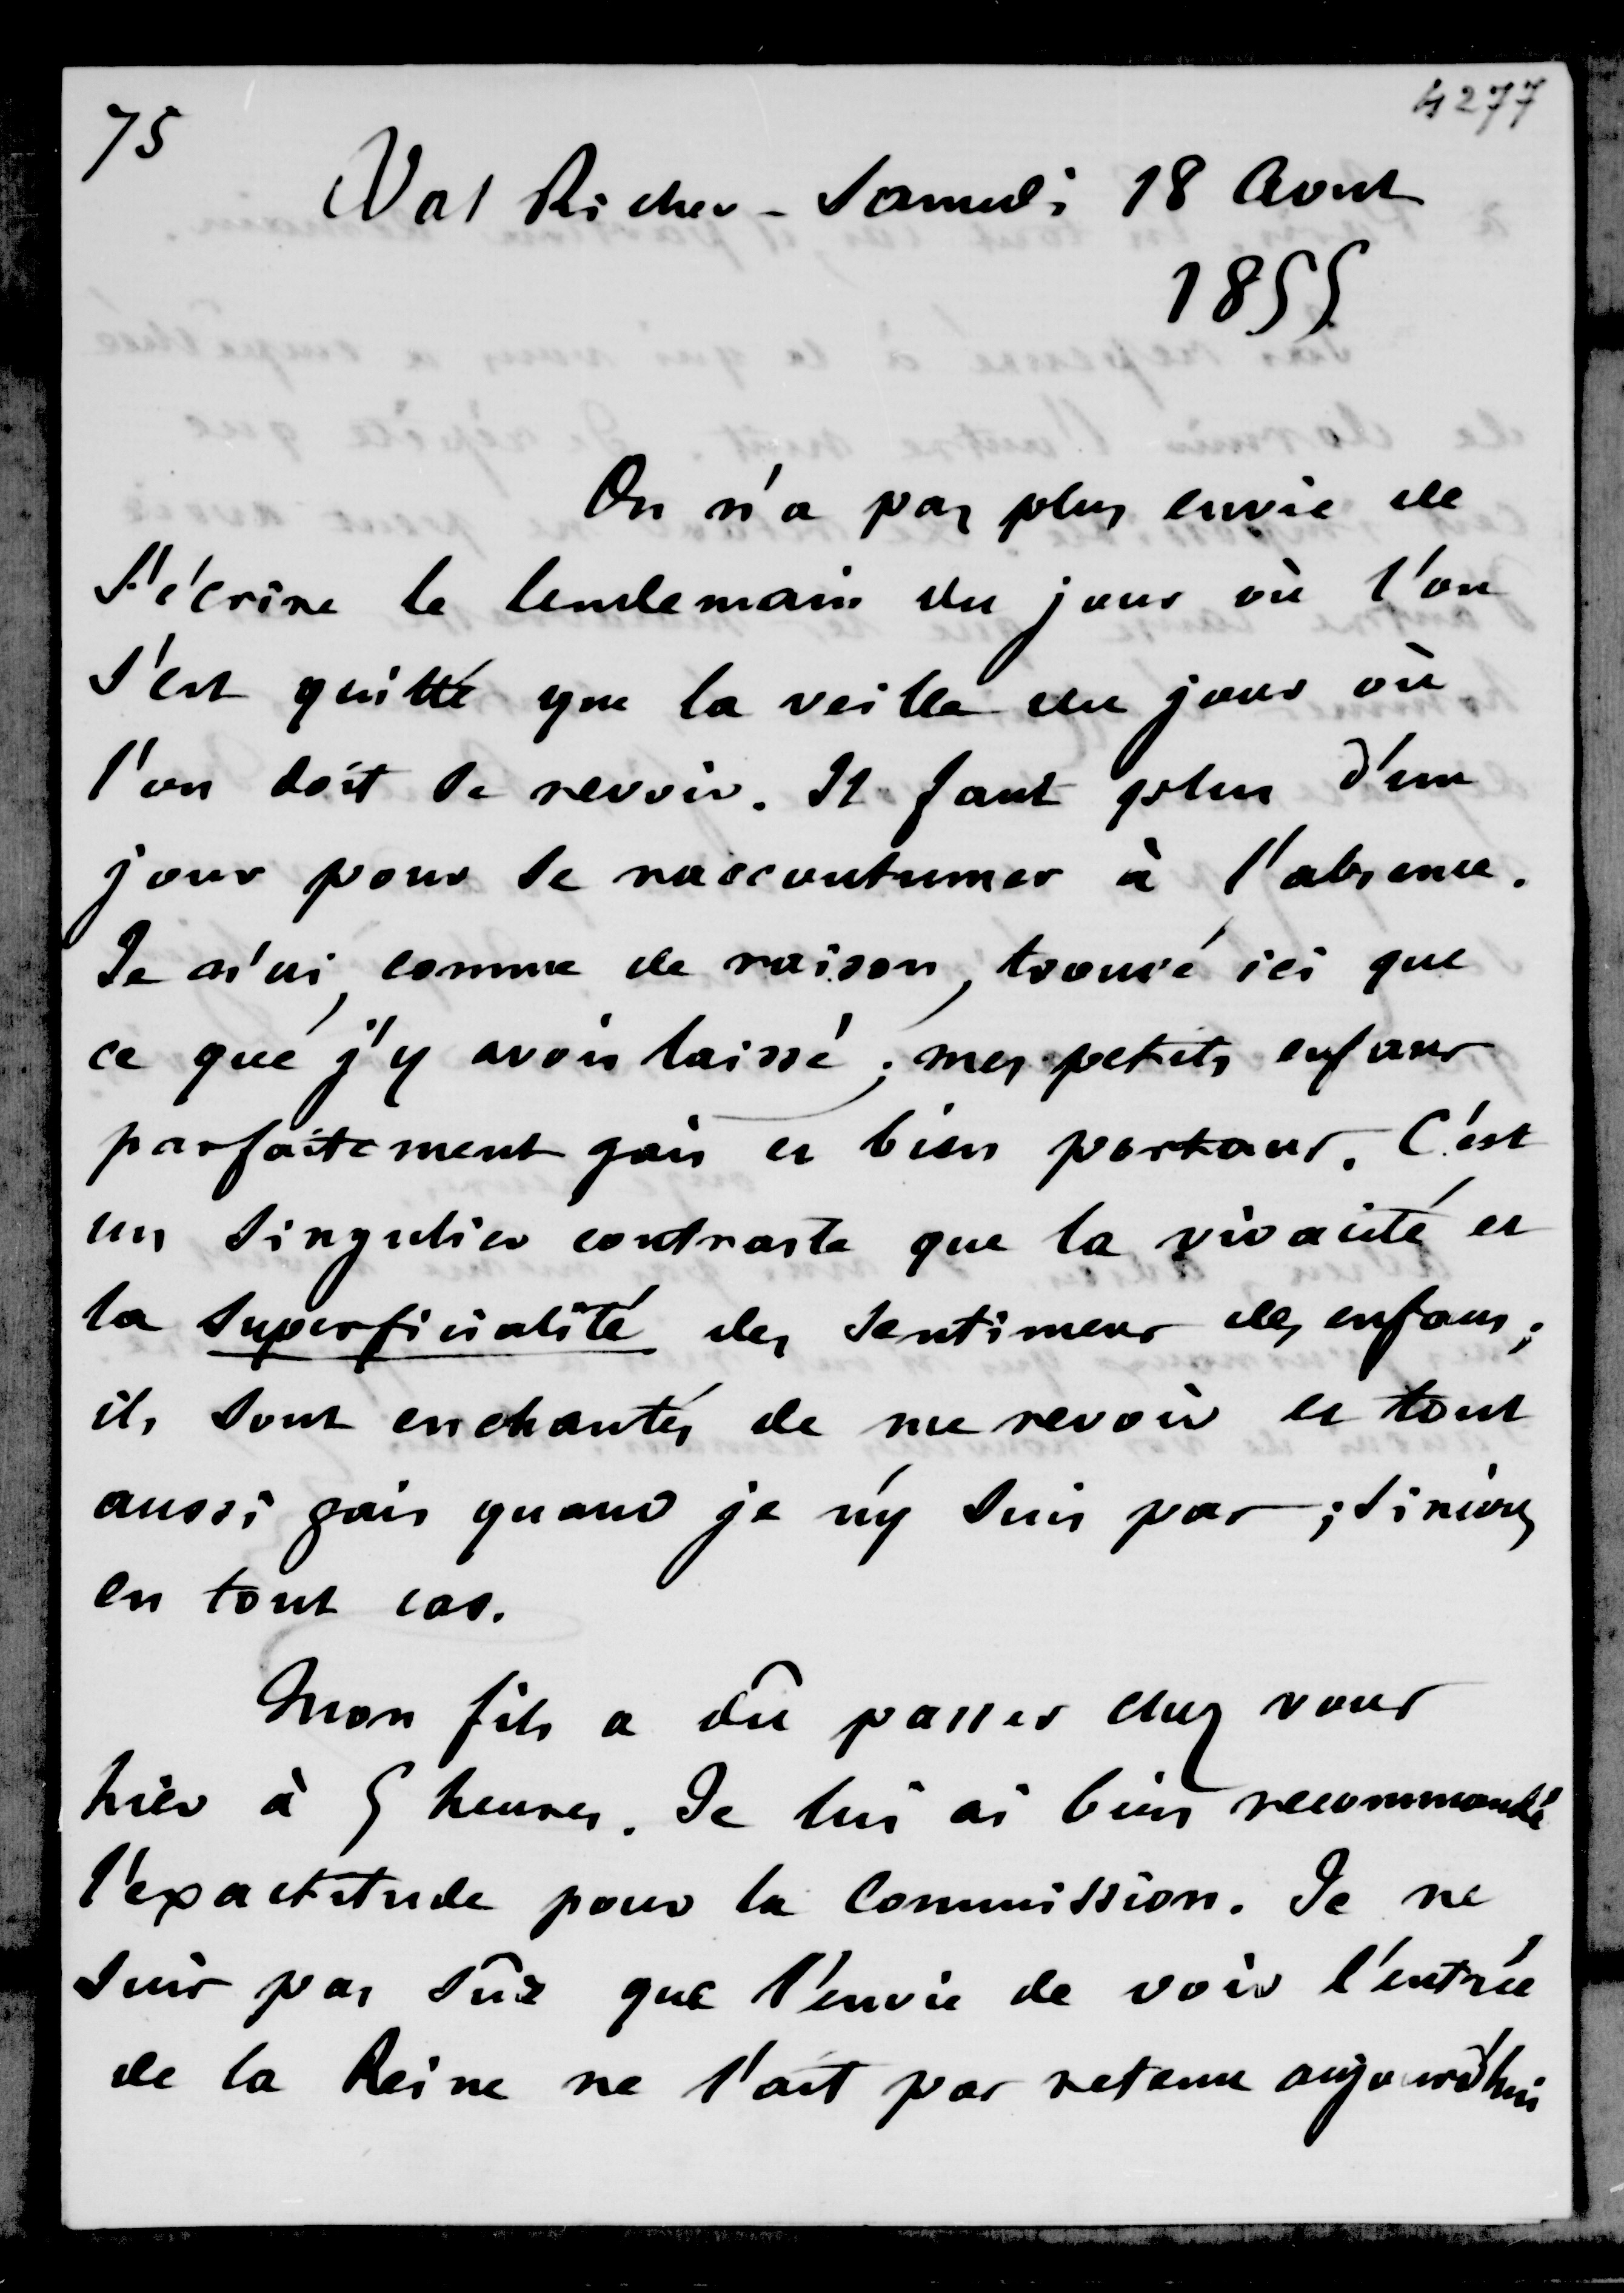 75
4277
Val Richer - Samedi 18 Aout
1855
On n'a pas plus envie de
s'écrire le lendemain du jour où l'on
s'est quitté que la veille du jour où
l'on doit se revoir. Il faut plus d'un
jour pour se raccoutumer à l'absence.
Je n'ai, comme de raison, trouvé ici que
ce que j'y avois laissé ; mes petits enfans
parfaitement gais et bien portans. C'est
un singulier contraste que la vivacité et
la superficialité des sentimens des enfans ;
ils sont enchantés de me revoir et tout
aussi gais quand je n'y suis pas ; sincères
en tout cas.
Mon fils a dû passer chez vous
hier à 5 heures. Je lui ai bien recommandé
l'exactitude pour la commission. Je ne
suis pas sûr que l'envie de voir l'entrée
de la Reine ne l'ait pas retenu aujourd'hui